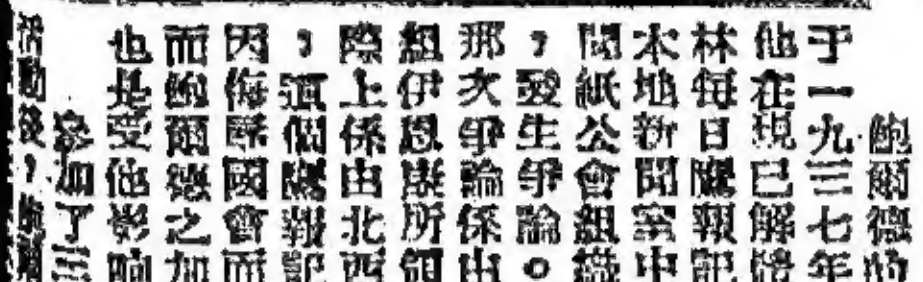 鮑爾德的
于一九三七年
他在現已解體
林每日鷹報記
本地新聞室中
聞紙公會組織
，發生爭論。
那次爭論係由
組伊恩所領
際上係由北西
，這個鷹報記
因侮辱國會而
而鮑爾德之加
也是受他影响
參加了三
活動後，鮑爾